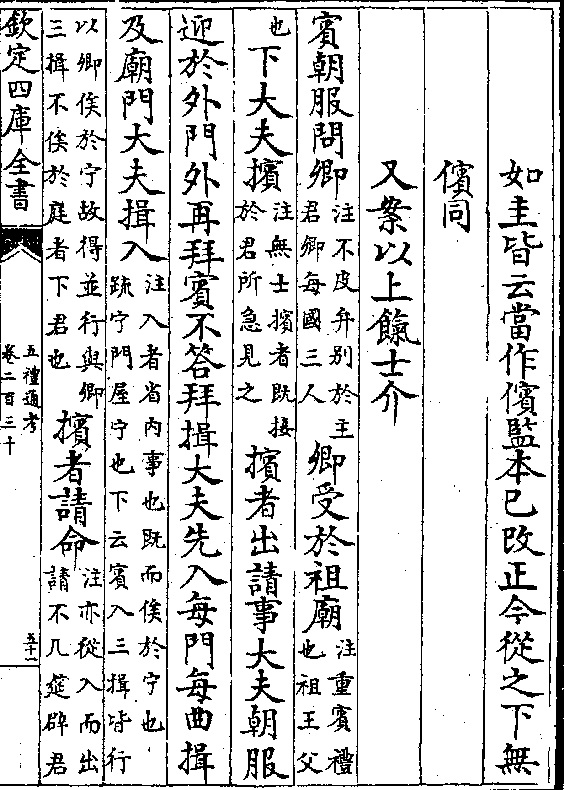 如圭皆云當作儐監本已改正今從之下無
儐同
又案以上餼士介
賓朝服問卿注不皮弁别於主君卿每國三人卿受於祖廟注重賓禮也祖王父
也下大夫擯注無士擯者既接於君所急見之擯者出請事大夫朝服
迎於外門外再拜賓不答拜揖大夫先入每門每曲揖
及廟門大夫揖入注入者省内事也既而俟於宁也疏宁門屋宁也下云賓入三揖皆行
以卿俟於宁故得並行與卿三揖不俟於庭者下君也擯者請命注亦從入而出請不几筵辟君
欽定四庫全書
五禮通考
卷二百三十
五十一